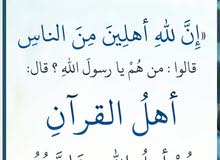 «إِنَّ للهِ أهلِينَ مِنَ الناسِ
قالوا : من هُمْ يا رسولَ اللهِ ؟ قال:
أهلُ القرآنِ